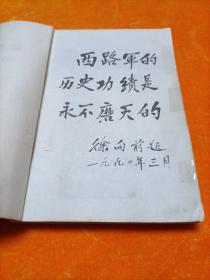 西路军的
历史功绩是
永不磨灭的
徐向前题
一九九〇年三月